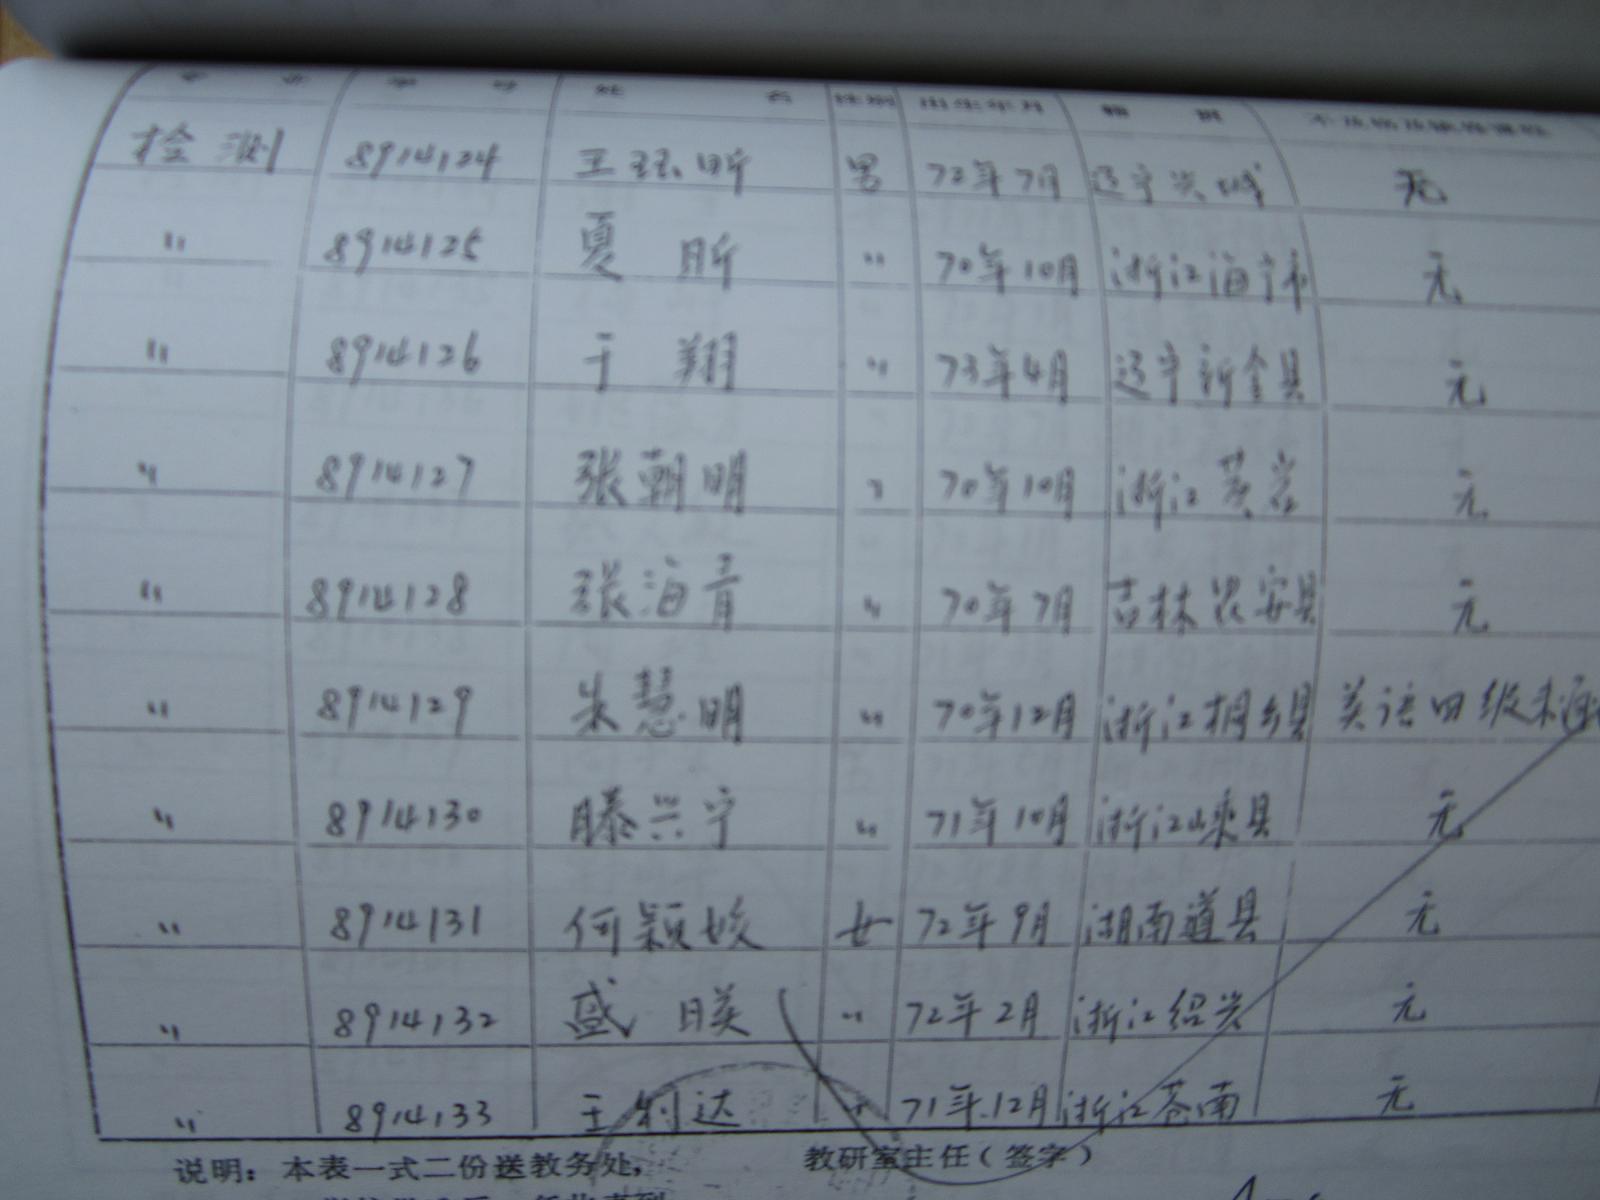 专 业 学 号 姓 名 性别 出生年月 籍 贯 不及格及缺修课程
检测 8914124 王珏昕 男 72年7月 辽宁兴城 无
〃 8914125 夏 昕 〃 70年10月 浙江海宁市 无
〃 8914126 于 翔 〃 73年4月 辽宁新金县 无
〃 8914127 张朝明 〃 70年10月 浙江黄岩 无
〃 8914128 张海青 〃 70年7月 吉林农安县 无
〃 8914129 朱慧明 〃 70年12月 浙江桐乡县 英语四级未通
〃 8914130 滕兴宁 〃 71年10月 浙江嵊县 无
〃 8914131 何颖姣 女 72年9月 湖南道县 无
〃 8914132 盛 暎 〃 72年2月 浙江绍兴 无
〃 8914133 王利达 71年12月 浙江苍南 无
说明：本表一式二份送教务处， 教研室主任（签字）